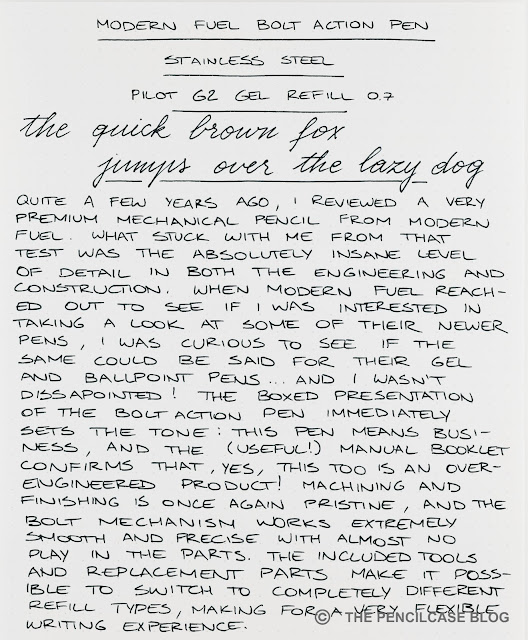 MODERN FUEL BOLT ACTION PEN
STAINLESS STEEL
PILOT G2 GEL REFILL 0.7
the quick brown fox
jumps over the lazy dog
QUITE A FEW YEARS AGO, I REVIEWED A VERY
PREMIUM MECHANICAL PENCIL FROM MODERN
FUEL. WHAT STUCK WITH ME FROM THAT
TEST WAS THE ABSOLUTELY INSANE LEVEL
OF DETAIL IN BOTH THE ENGINEERING AND
CONSTRUCTION. WHEN MODERN FUEL REACH-
ED OUT TO SEE IF I WAS INTERESTED IN
TAKING A LOOK AT SOME OF THEIR NEWER
PENS, I WAS CURIOUS TO SEE IF THE
SAME COULD BE SAID FOR THEIR GEL
AND BALLPOINT PENS... AND I WASN'T
DISSAPOINTED! THE BOXED PRESENTATION
OF THE BOLT ACTION PEN IMMEDIATELY
SETS THE TONE: THIS PEN MEANS BUSI-
NESS, AND THE (USEFUL!) MANUAL BOOKLET
CONFIRMS THAT, YES, THIS TOO IS AN OVER-
ENGINEERED PRODUCT! MACHINING AND
FINISHING IS ONCE AGAIN PRISTINE, AND THE
BOLT MECHANISM WORKS EXTREMELY
SMOOTH AND PRECISE WITH ALMOST NO
PLAY IN THE PARTS. THE INCLUDED TOOLS
AND REPLACEMENT PARTS MAKE IT POSS-
IBLE TO SWITCH TO COMPLETELY DIFFERENT
REFILL TYPES, MAKING FOR A VERY FLEXIBLE
WRITING EXPERIENCE.
© THE PENCILCASE BLOG